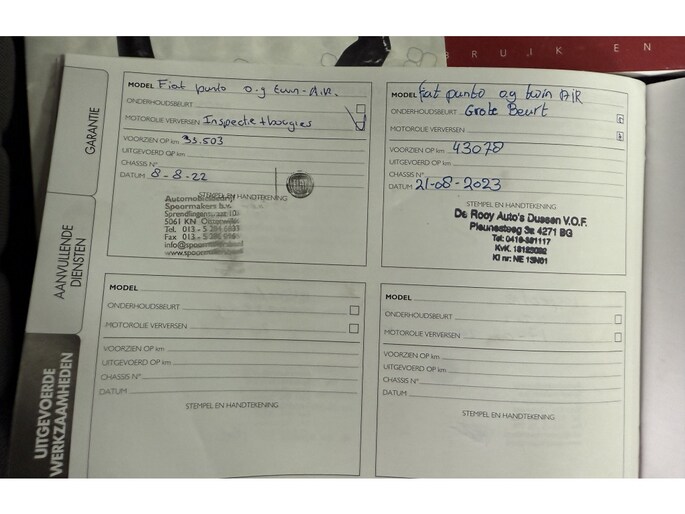 BRUIK EN
GARANTIE
AANVULLENDE
DIENSTEN
UITGEVOERDE
WERKZAAMHEDEN
MODEL Fiat punto 0.9 Twin-AiR.
ONDERHOUDSBEURT
MOTOROLIE VERVERSEN Inspectie + bougies
VOORZIEN OP km 33.503
UITGEVOERD OP km
CHASSIS N°
DATUM 8-8-22
STEMPEL EN HANDTEKENING
Automobielbedrijf
Spoormakers b.v.
5061 KN
Tel. 013 -
Fax 013 -
MODEL fiat punto 0.9 twin AIR
ONDERHOUDSBEURT Grote Beurt
MOTOROLIE VERVERSEN
VOORZIEN OP km 43078
UITGEVOERD OP km
CHASSIS N°
DATUM 21-08-2023
STEMPEL EN HANDTEKENING
De Rooy Auto's Dussen V.O.F.
4271 BG
Tel: 0416-391117
KvK. 18123092
KI nr: NE 13N01
MODEL
ONDERHOUDSBEURT
MOTOROLIE VERVERSEN
VOORZIEN OP km
UITGEVOERD OP km
CHASSIS N°
DATUM
STEMPEL EN HANDTEKENING
MODEL
ONDERHOUDSBEURT
MOTOROLIE VERVERSEN
VOORZIEN OP km
UITGEVOERD OP km
CHASSIS N°
DATUM
STEMPEL EN HANDTEKENING